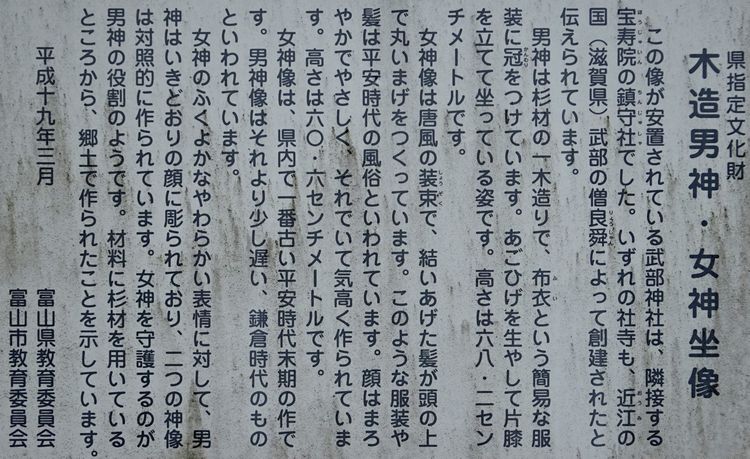 県指定文化財
木造男神・女神坐像
この像が安置されている武部神社は、隣接する
宝寿院の鎮守社でした。いずれの社寺も、近江の
国（滋賀県）武部の僧良舜によって創建されたと
伝えられています。
男神は杉材の一木造りで、布衣という簡易な服
装に冠をつけています。あごひげを生やして片膝
を立てて坐っている姿です。高さは六八・二セン
チメートルです。
女神像は唐風の装束で、結いあげた髪が頭の上
で丸いまげをつくっています。このような服装や
髪は平安時代の風俗といわれています。顔はまろ
やかでやさしく、それでいて気高く作られていま
す。高さは六〇・六センチメートルです。
女神像は、県内で一番古い平安時代末期の作で
す。男神像はそれより少し遅い、鎌倉時代のもの
といわれています。
女神のふくよかなやわらかい表情に対して、男
神はいきどおりの顔に彫られており、二つの神像
は対照的に作られています。女神を守護するのが
男神の役割のようです。材料に杉材を用いている
ところから、郷土で作られたことを示しています。
平成十九年三月
富山県教育委員会
富山市教育委員会